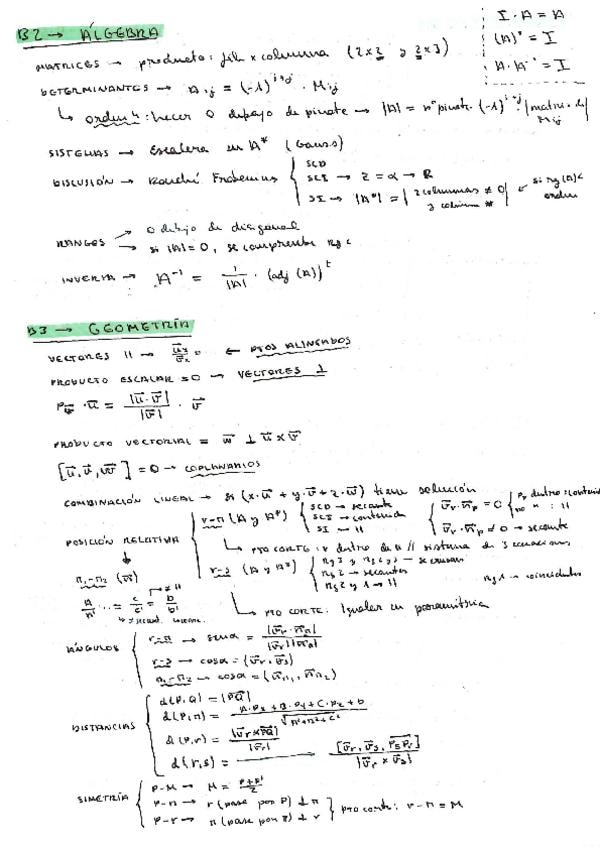 B2 → ÁLGEBRA
I · A = A
(A)° = I
A · A⁻¹ = I
MATRICES → producto: fila x columna (2x2 y 2x3)
DETERMINANTES → Aij = (-1)^i+j · Mij
↳ orden 4: hacer 0 debajo de pivote → |A| = nº pivote · (-1)^i+j · |matriz del Mij
SISTEMAS → Escalera en A* (Gauss)
DISCUSIÓN → Rouché Frobenius
SCD
SCI → z = α → R
SI → |A*| = | 2 columnas ≠ 0 y columna * | ← si rg(A) < orden
RANGOS → 0 debajo de diagonal
→ si |A| = 0, se comprueba rg <
INVERSA → A⁻¹ = 1/|A| · (adj (A))^t
B3 → GEOMETRÍA
VECTORES || → ← PTOS ALINEADOS
PRODUCTO ESCALAR = 0 → VECTORES ⊥
· u = |u · v| / |v| · v
PRODUCTO VECTORIAL = w ⊥ u x v
[u, v, w] = 0 → COPLANARIOS
COMBINACIÓN LINEAL → si (x·u + y·v + z·w) tiene solución
POSICIÓN RELATIVA
r-π (A y A*)
SCD → secante
SCI → contenida
SI → ||
vr · np = 0
Pr dentro: contenida
no " : ||
vr · np ≠ 0 → secante
↳ PTO CORTE: r dentro de π || sistema de 3 ecuaciones
r-s (A y A*)
rg 2 y rg 3 → se cruzan
rg 2 → secantes
rg 2 y 1 → ||
rg 1 → coincidentes
↳ PTO CORTE: Igualar en paramétrica
π1-π2
ÁNGULOS
r-π → senα = |vr · nπ| / |vr||nπ|
r-s → cosα = (vr, vs)
π1-π2 → cosα = (nπ1, nπ2)
DISTANCIAS
d(P,Q) = |PQ|
d(P,π) = A·Px + B·Py + C·Pz + D / √A²+B²+C²
d(P,r) = |vr x PQ| / |vr|
d(r,s) = [vr, vs, PsPr] / |vr x vs|
SIMETRÍA
P-M → M = P+P' / 2
P-π → r (pase por P) ⊥ π
P-r → π (pase por P) ⊥ r
pto corte: r-π = M